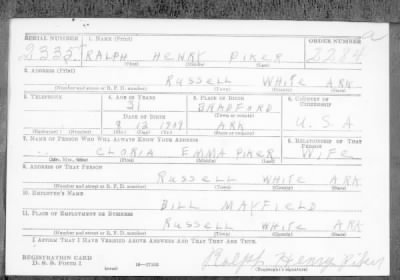 SERIAL NUMBER 1. NAME (Print) ORDER NUMBER
RALPH HENRY PIKER
(First) (Middle) (Last)
2. ADDRESS (Print)
RUSSELL WHITE ARK
(Number and street or R. F. D. number) (Town) (County) (State)
3. TELEPHONE 4. AGE IN YEARS 5. PLACE OF BIRTH 6. COUNTRY OF CITIZENSHIP
31 BRADFORD
DATE OF BIRTH (Town or county)
ARK U.S.A
(Exchange) (Number) (Mo.) (Day) (Yr.) (State or country)
7. NAME OF PERSON WHO WILL ALWAYS KNOW YOUR ADDRESS 8. RELATIONSHIP OF THAT PERSON
EMMA PIKER WIFE
(Mr., Mrs., Miss) (First) (Middle) (Last)
9. ADDRESS OF THAT PERSON
RUSSELL WHITE ARK
(Number and street or R. F. D. number) (Town) (County) (State)
10. EMPLOYER'S NAME
BILL MAYFIELD
11. PLACE OF EMPLOYMENT OR BUSINESS
RUSSELL WHITE ARK
(Number and street or R. F. D. number) (Town) (County) (State)
I AFFIRM THAT I HAVE VERIFIED ABOVE ANSWERS AND THAT THEY ARE TRUE.
REGISTRATION CARD
D. S. S. Form 1 Ralph Henry Piker
(Registrant's signature)